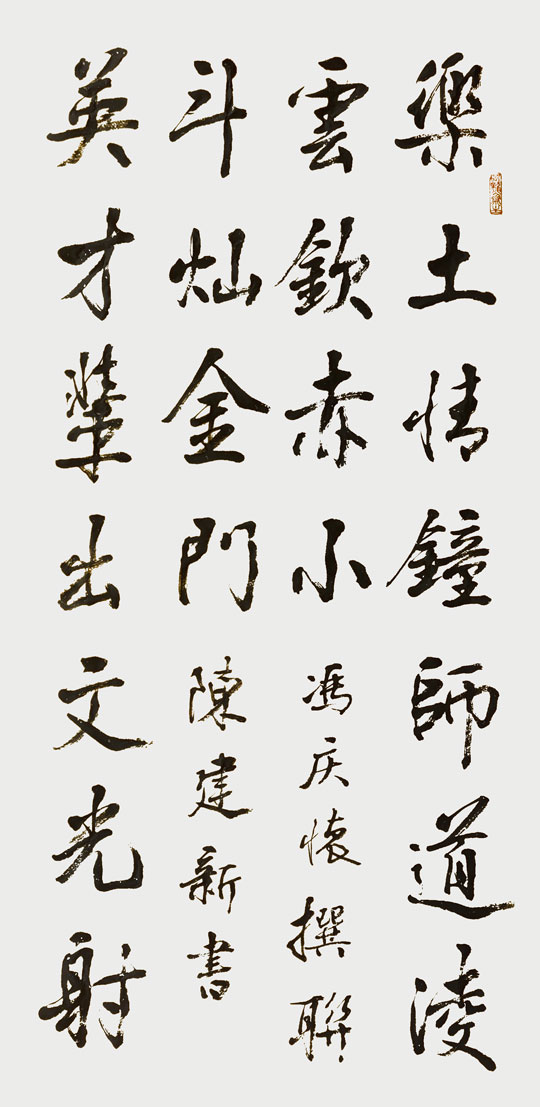 樂土情鐘師道淩
雲欽赤小
英才輩出文光射
斗灿金門
馮庆懷撰聯
陳建新書